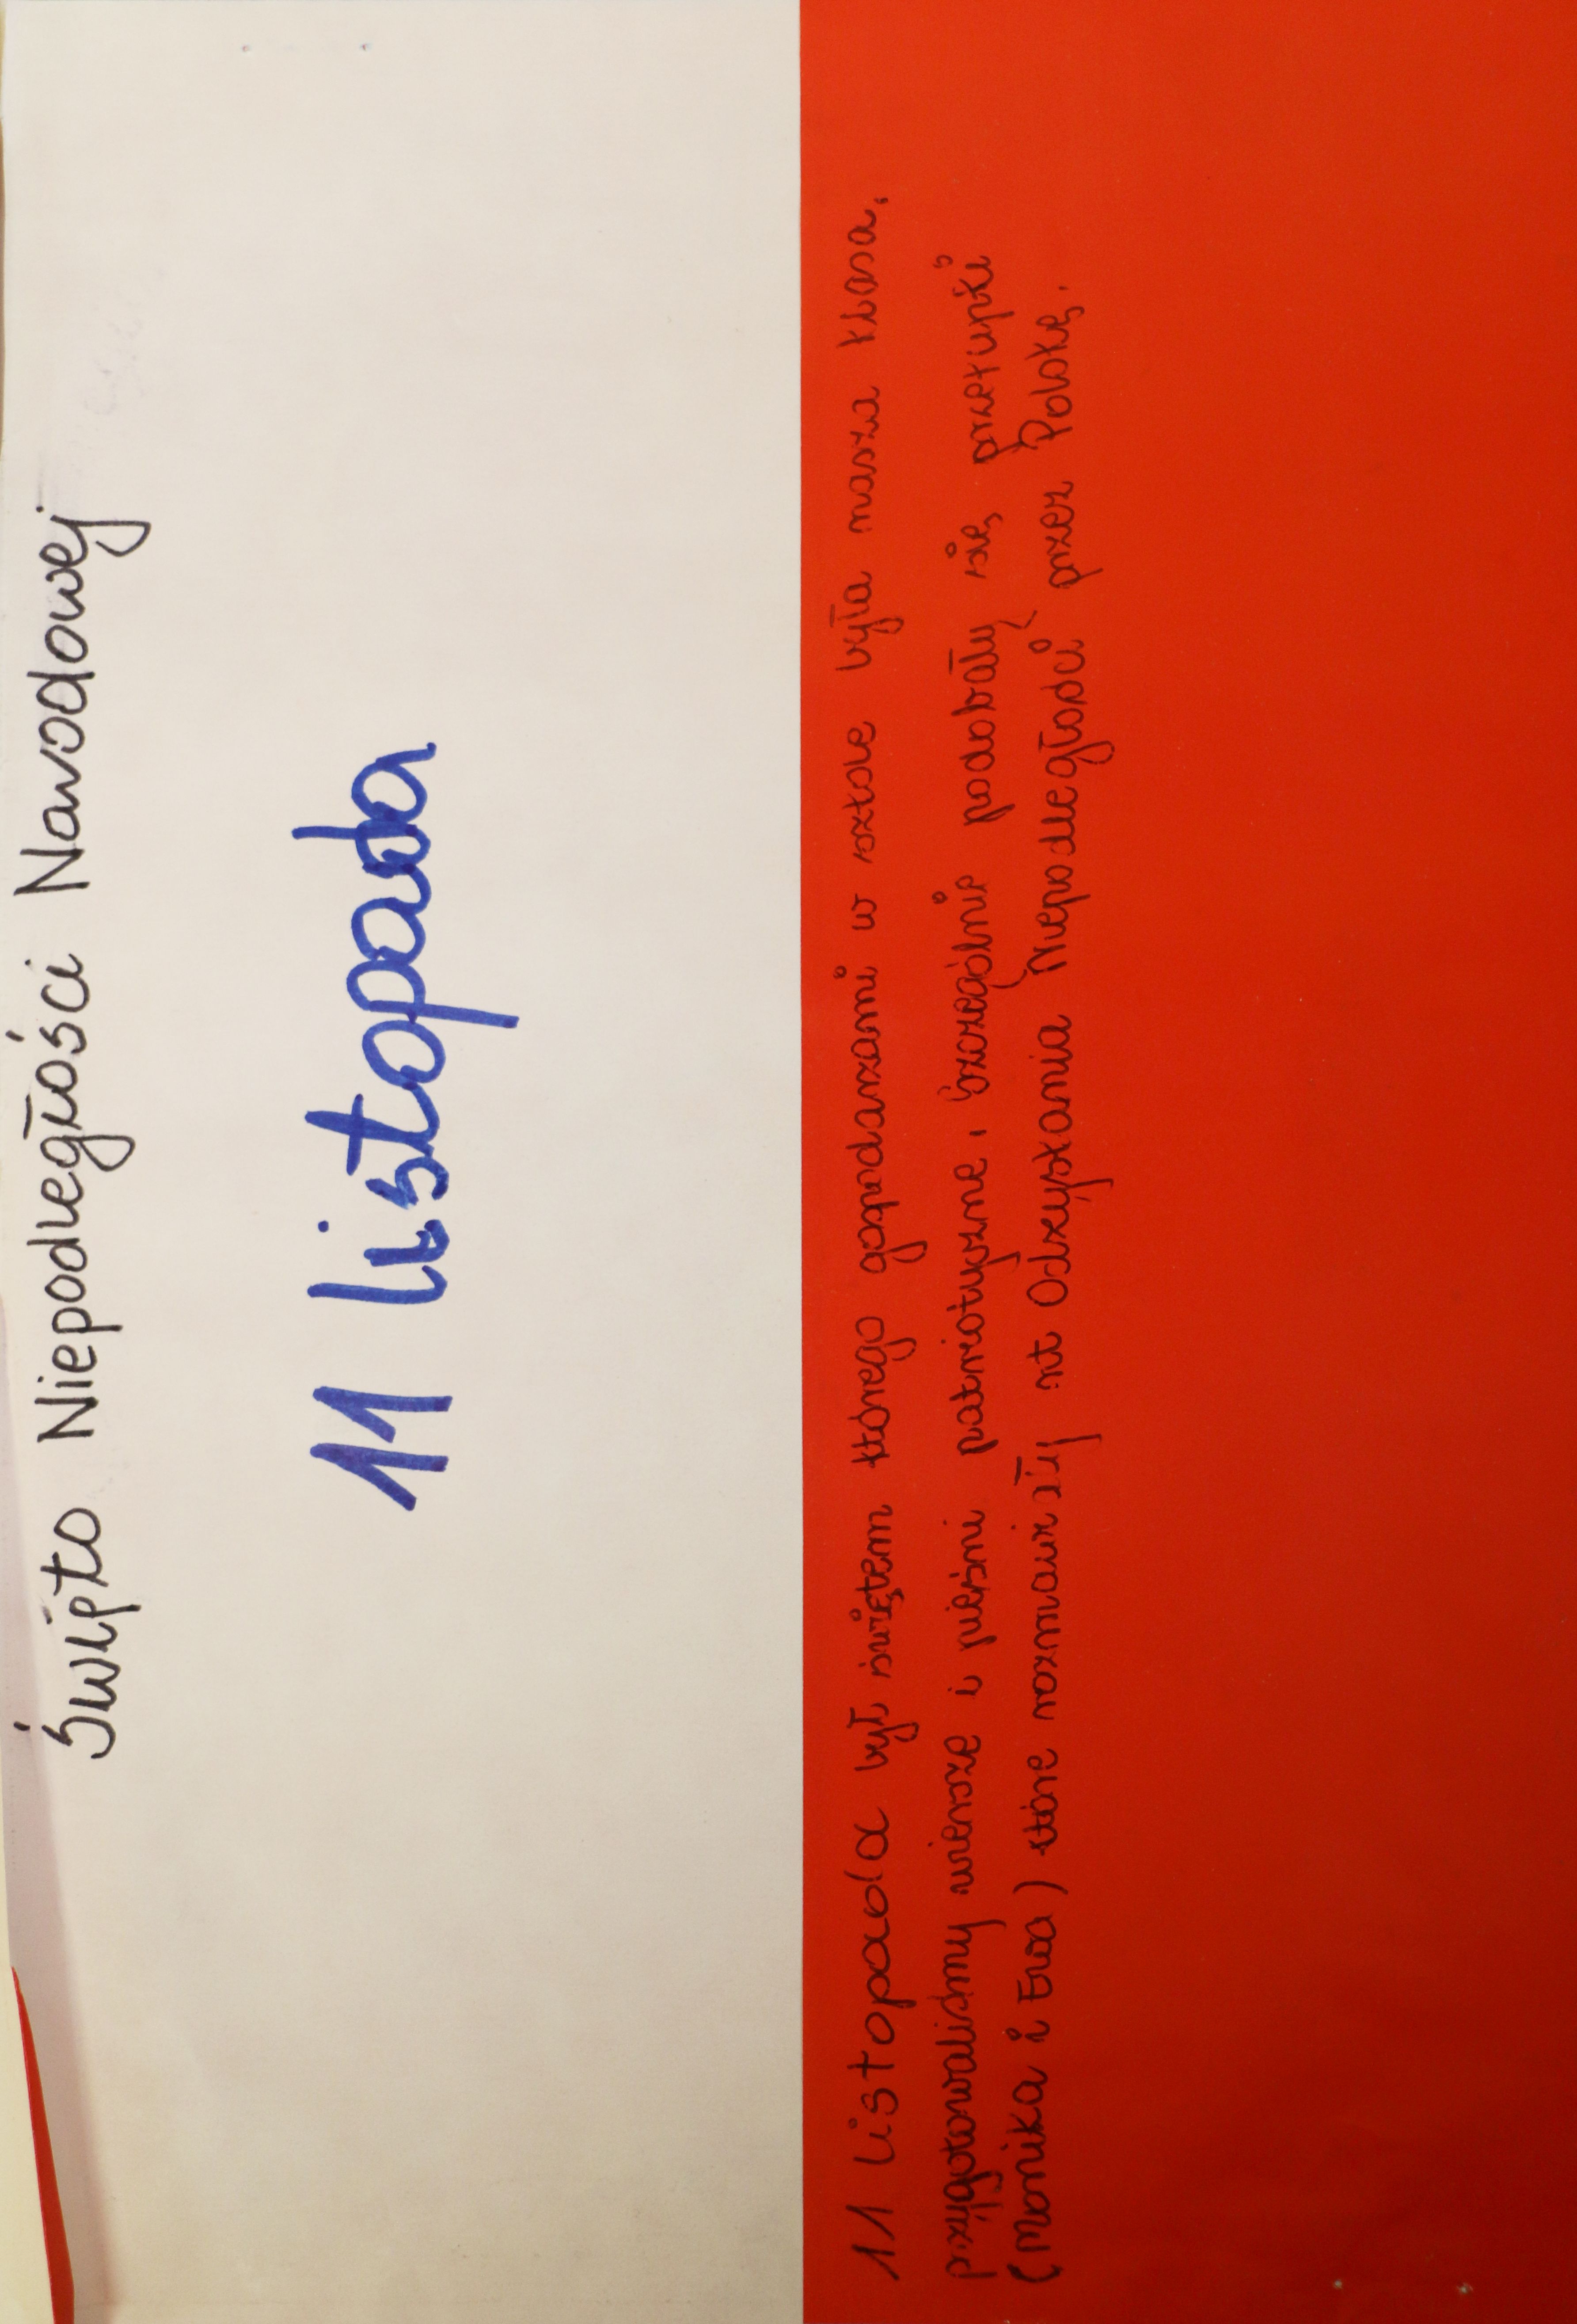 Święto Niepodległości Narodowej
11 listopada
11 Listopada był świętem którego gospodarzami w szkole była nasza klasa,
przygotowaliśmy wiersze i pieśni patriotyczne, szczególnie podobały się przekupki
(Monika i Ewa) które rozmawiały nt Odzyskania Niepodległości przez Polskę.